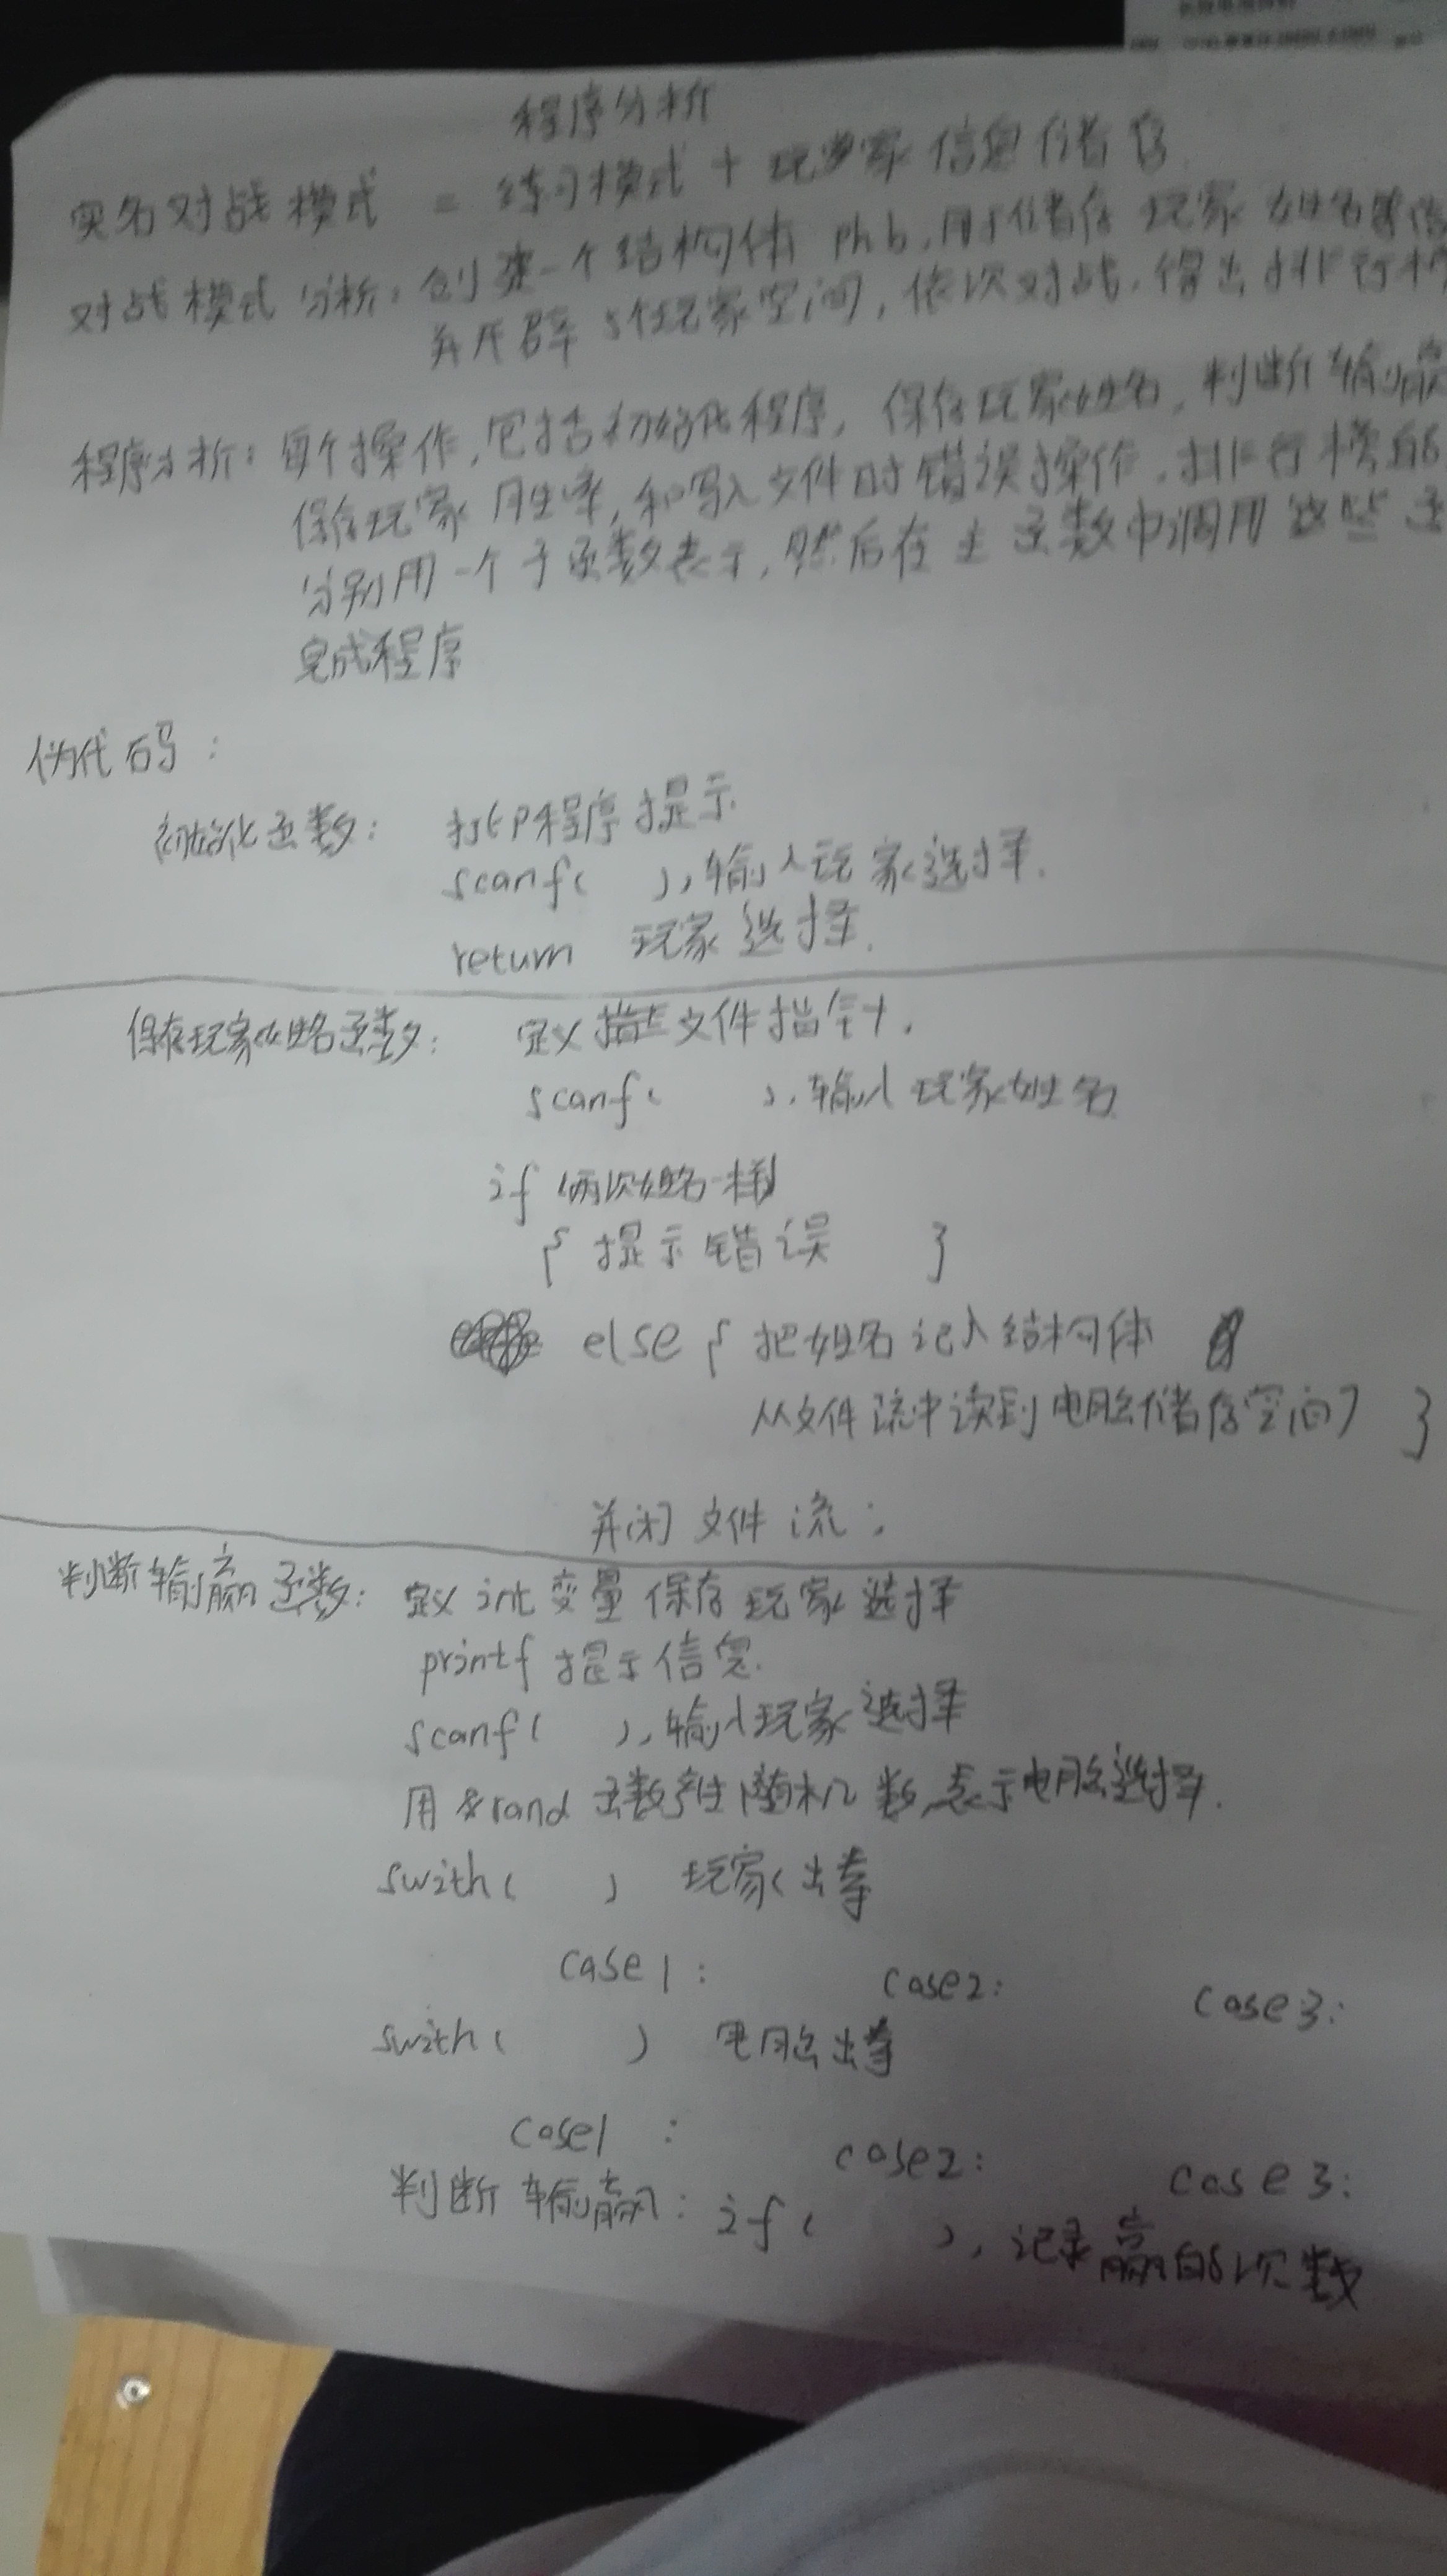 程序分析
实名对战模式 = 练习模式 + 玩家信息储存
对战模式分析: 创建一个结构体 phb, 用于储存玩家姓名等信
并开辟5个玩家空间, 依次对战, 得出排行榜
程序分析: 每个操作, 包括初始化程序, 保存玩家姓名, 判断输赢
保存玩家胜率, 和写入文件时错误操作, 排行榜的
分别用一个子函数表示, 然后在主函数中调用这些函
完成程序
伪代码:
初始化函数: 打印程序提示.
scanf( ), 输入玩家选择.
return 玩家选择.
保存玩家姓名函数: 定义文件指针,
scanf( ), 输入玩家姓名
if (两次姓名一样)
{ 提示错误 }
else { 把姓名记入结构体
从文件流中读到电脑储存空间 }
关闭文件流;
判断输赢函数: 定义 int 变量保存玩家选择
printf 提示信息.
scanf( ), 输入玩家选择
用 rand 函数产生随机数, 表示电脑选择.
swith( ) 玩家出拳
case1: case2: case3:
swith( ) 电脑出拳
case1: case2: case3:
判断输赢: if( ), 记录赢的次数